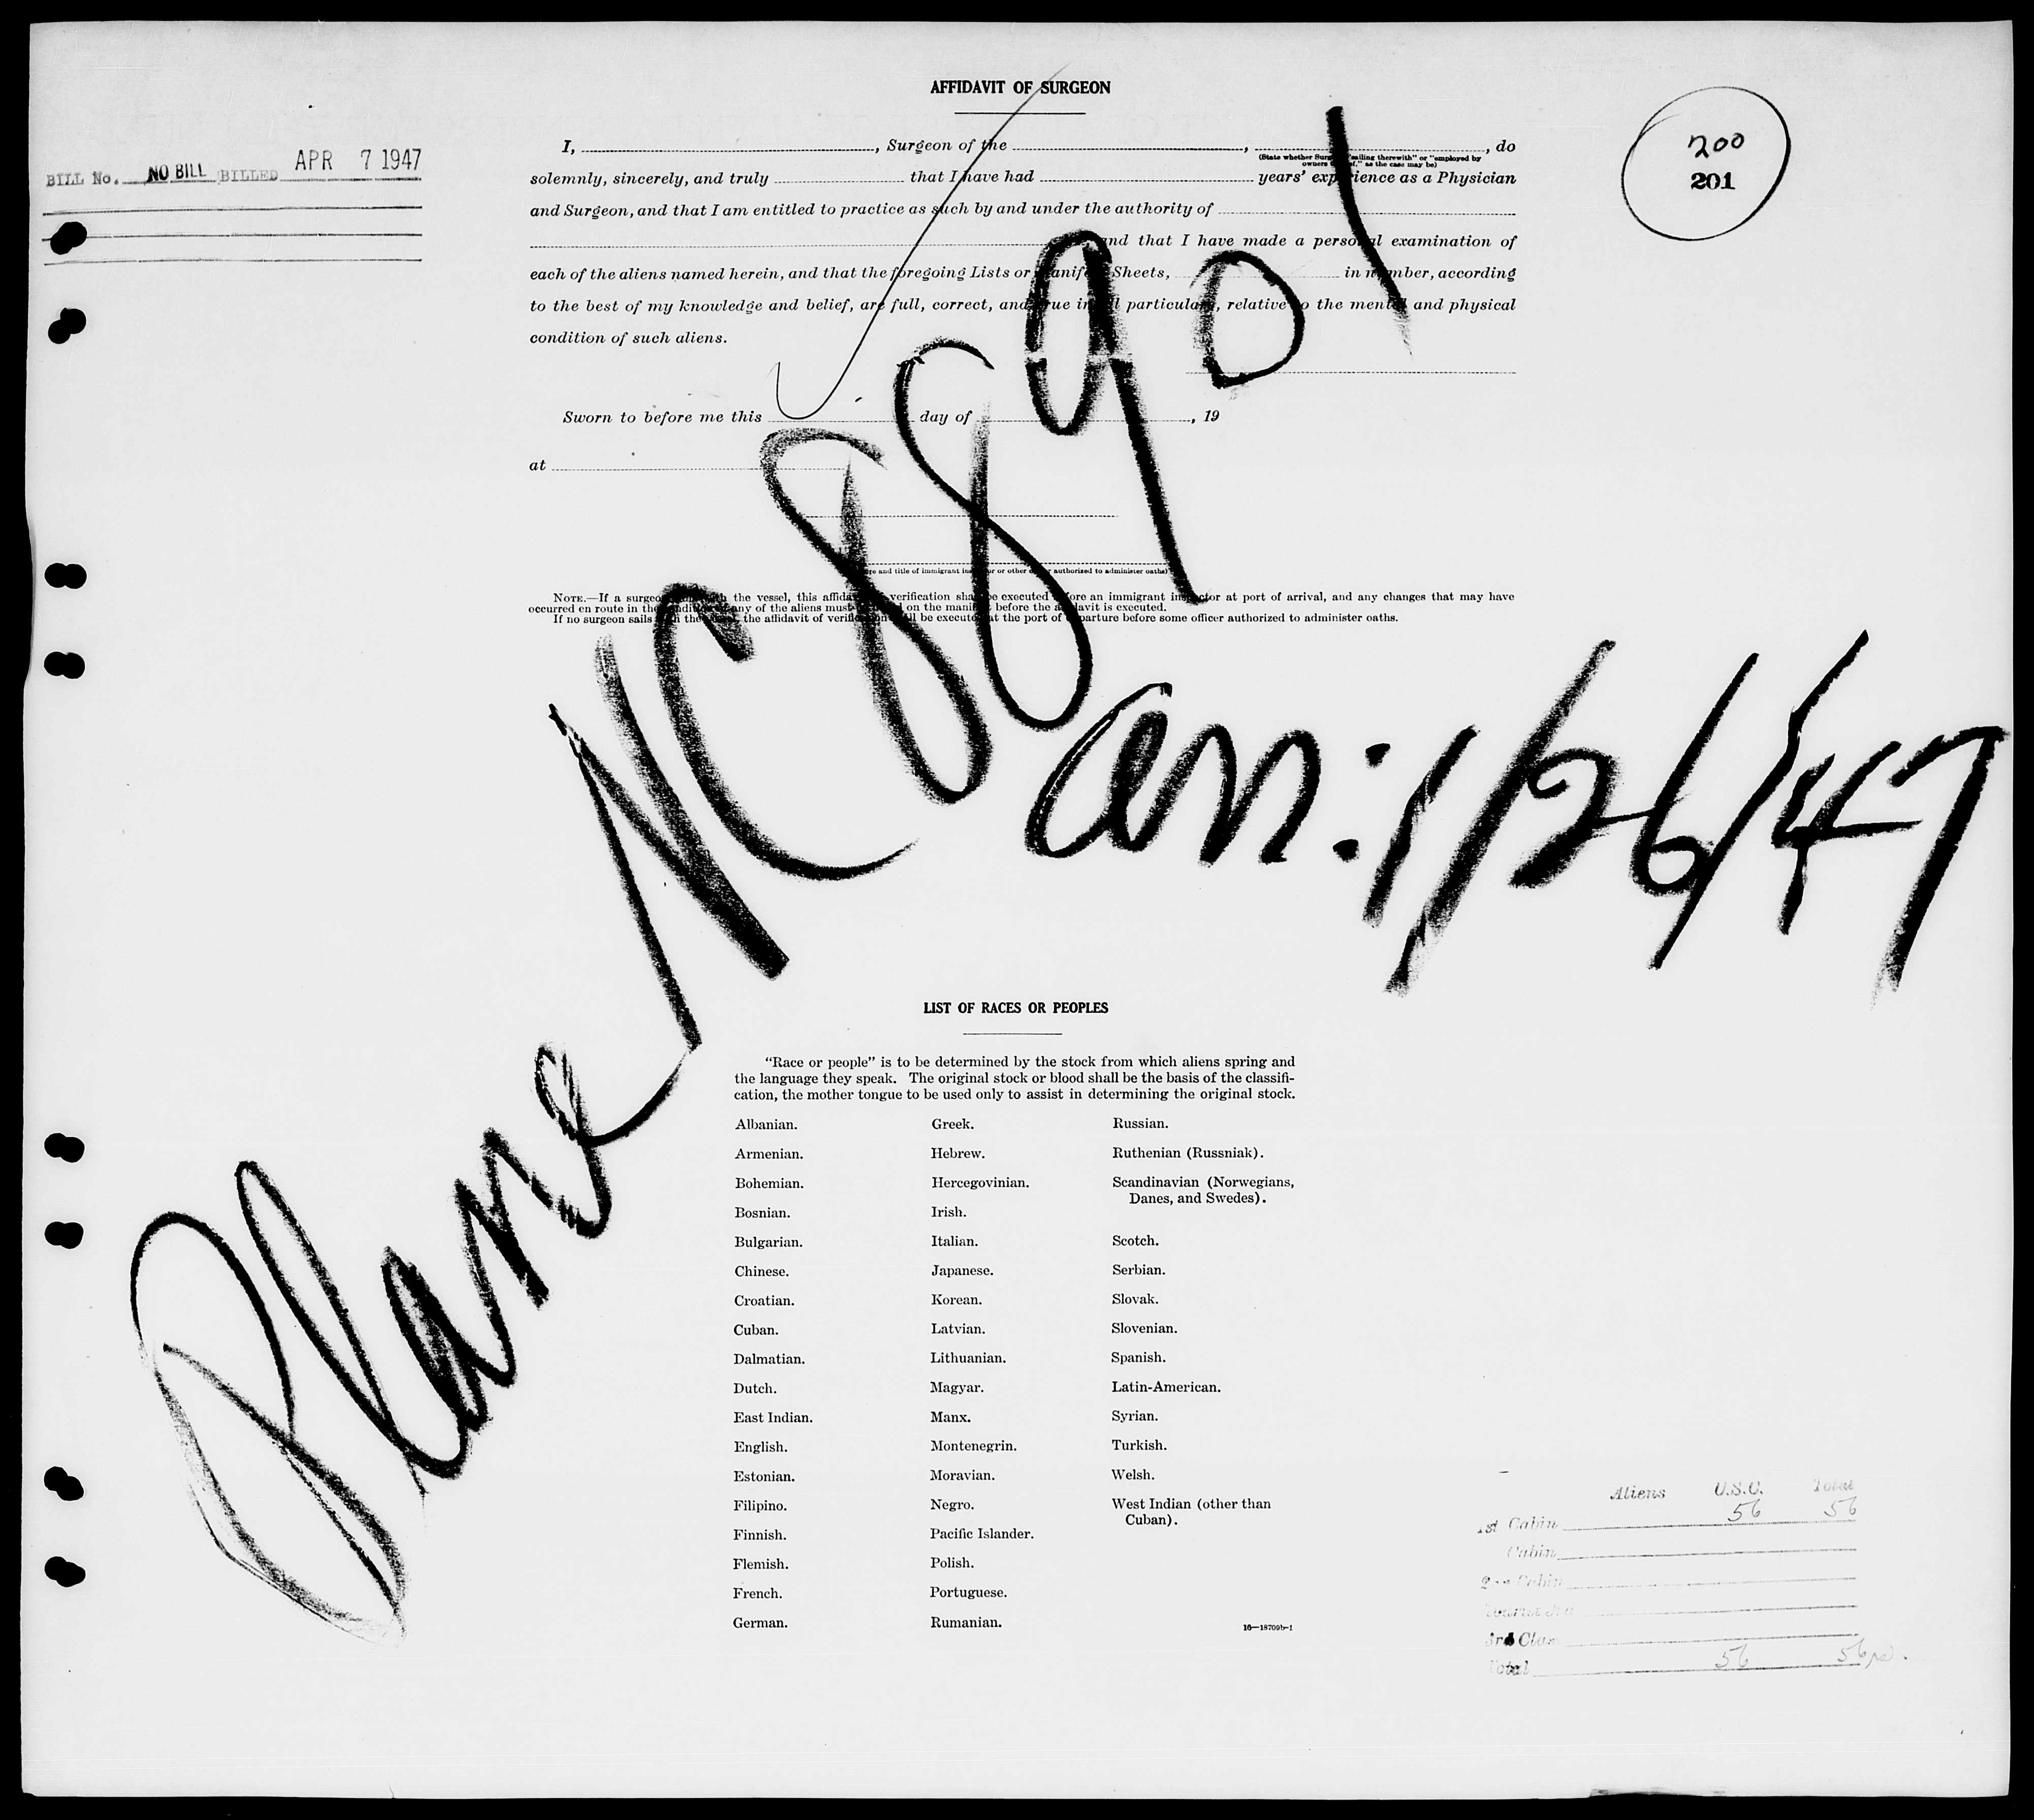 AFFIDAVIT OF SURGEON
BILL No. NO BILL BILLED APR 7 1947
200
201
I, , Surgeon of the , , do
(State whether Surgeon "sailing therewith" or "employed by
owners thereof," as the case may be)
solemnly, sincerely, and truly that I have had years' experience as a Physician
and Surgeon, and that I am entitled to practice as such by and under the authority of
and that I have made a personal examination of
each of the aliens named herein, and that the foregoing Lists or Manifest Sheets, in number, according
to the best of my knowledge and belief, are full, correct, and true in all particulars, relative to the mental and physical
condition of such aliens.
Sworn to before me this day of , 19
at
and title of immigrant inspector or other officer authorized to administer oaths)
NOTE.—If a surgeon the vessel, this affidavit verification shall be executed before an immigrant inspector at port of arrival, and any changes that may have
occurred en route in the condition of any of the aliens must on the manifest before the affidavit is executed.
If no surgeon sails with the vessel, the affidavit of verification shall be executed at the port of departure before some officer authorized to administer oaths.
Plane NC 88901
arr: 1/26/47
LIST OF RACES OR PEOPLES
"Race or people" is to be determined by the stock from which aliens spring and
the language they speak. The original stock or blood shall be the basis of the classifi-
cation, the mother tongue to be used only to assist in determining the original stock.
Albanian. Greek. Russian.
Armenian. Hebrew. Ruthenian (Russniak).
Bohemian. Hercegovinian. Scandinavian (Norwegians,
Danes, and Swedes).
Bosnian. Irish.
Bulgarian. Italian. Scotch.
Chinese. Japanese. Serbian.
Croatian. Korean. Slovak.
Cuban. Latvian. Slovenian.
Dalmatian. Lithuanian. Spanish.
Dutch. Magyar. Latin-American.
East Indian. Manx. Syrian.
English. Montenegrin. Turkish.
Estonian. Moravian. Welsh.
Filipino. Negro. West Indian (other than
Cuban).
Finnish. Pacific Islander.
Flemish. Polish.
French. Portuguese.
German. Rumanian.
16—18709b-1
Aliens U.S.C. Total
1st Cabin 56 56
Cabin
2nd Cabin
3rd Class
Total 56 56